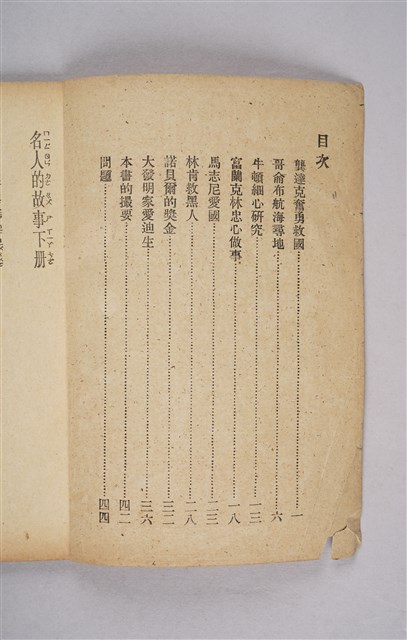 目次
龔達克奮勇救國……………………一
哥侖布航海尋地……………………六
牛頓細心研究……………………一三
富蘭克林忠心做事……………………一八
馬志尼愛國……………………二三
林肯救黑人……………………二八
諾貝爾的獎金……………………三二
大發明家愛迪生……………………三六
本書的撮要……………………四二
問題……………………四四
名人的故事下册